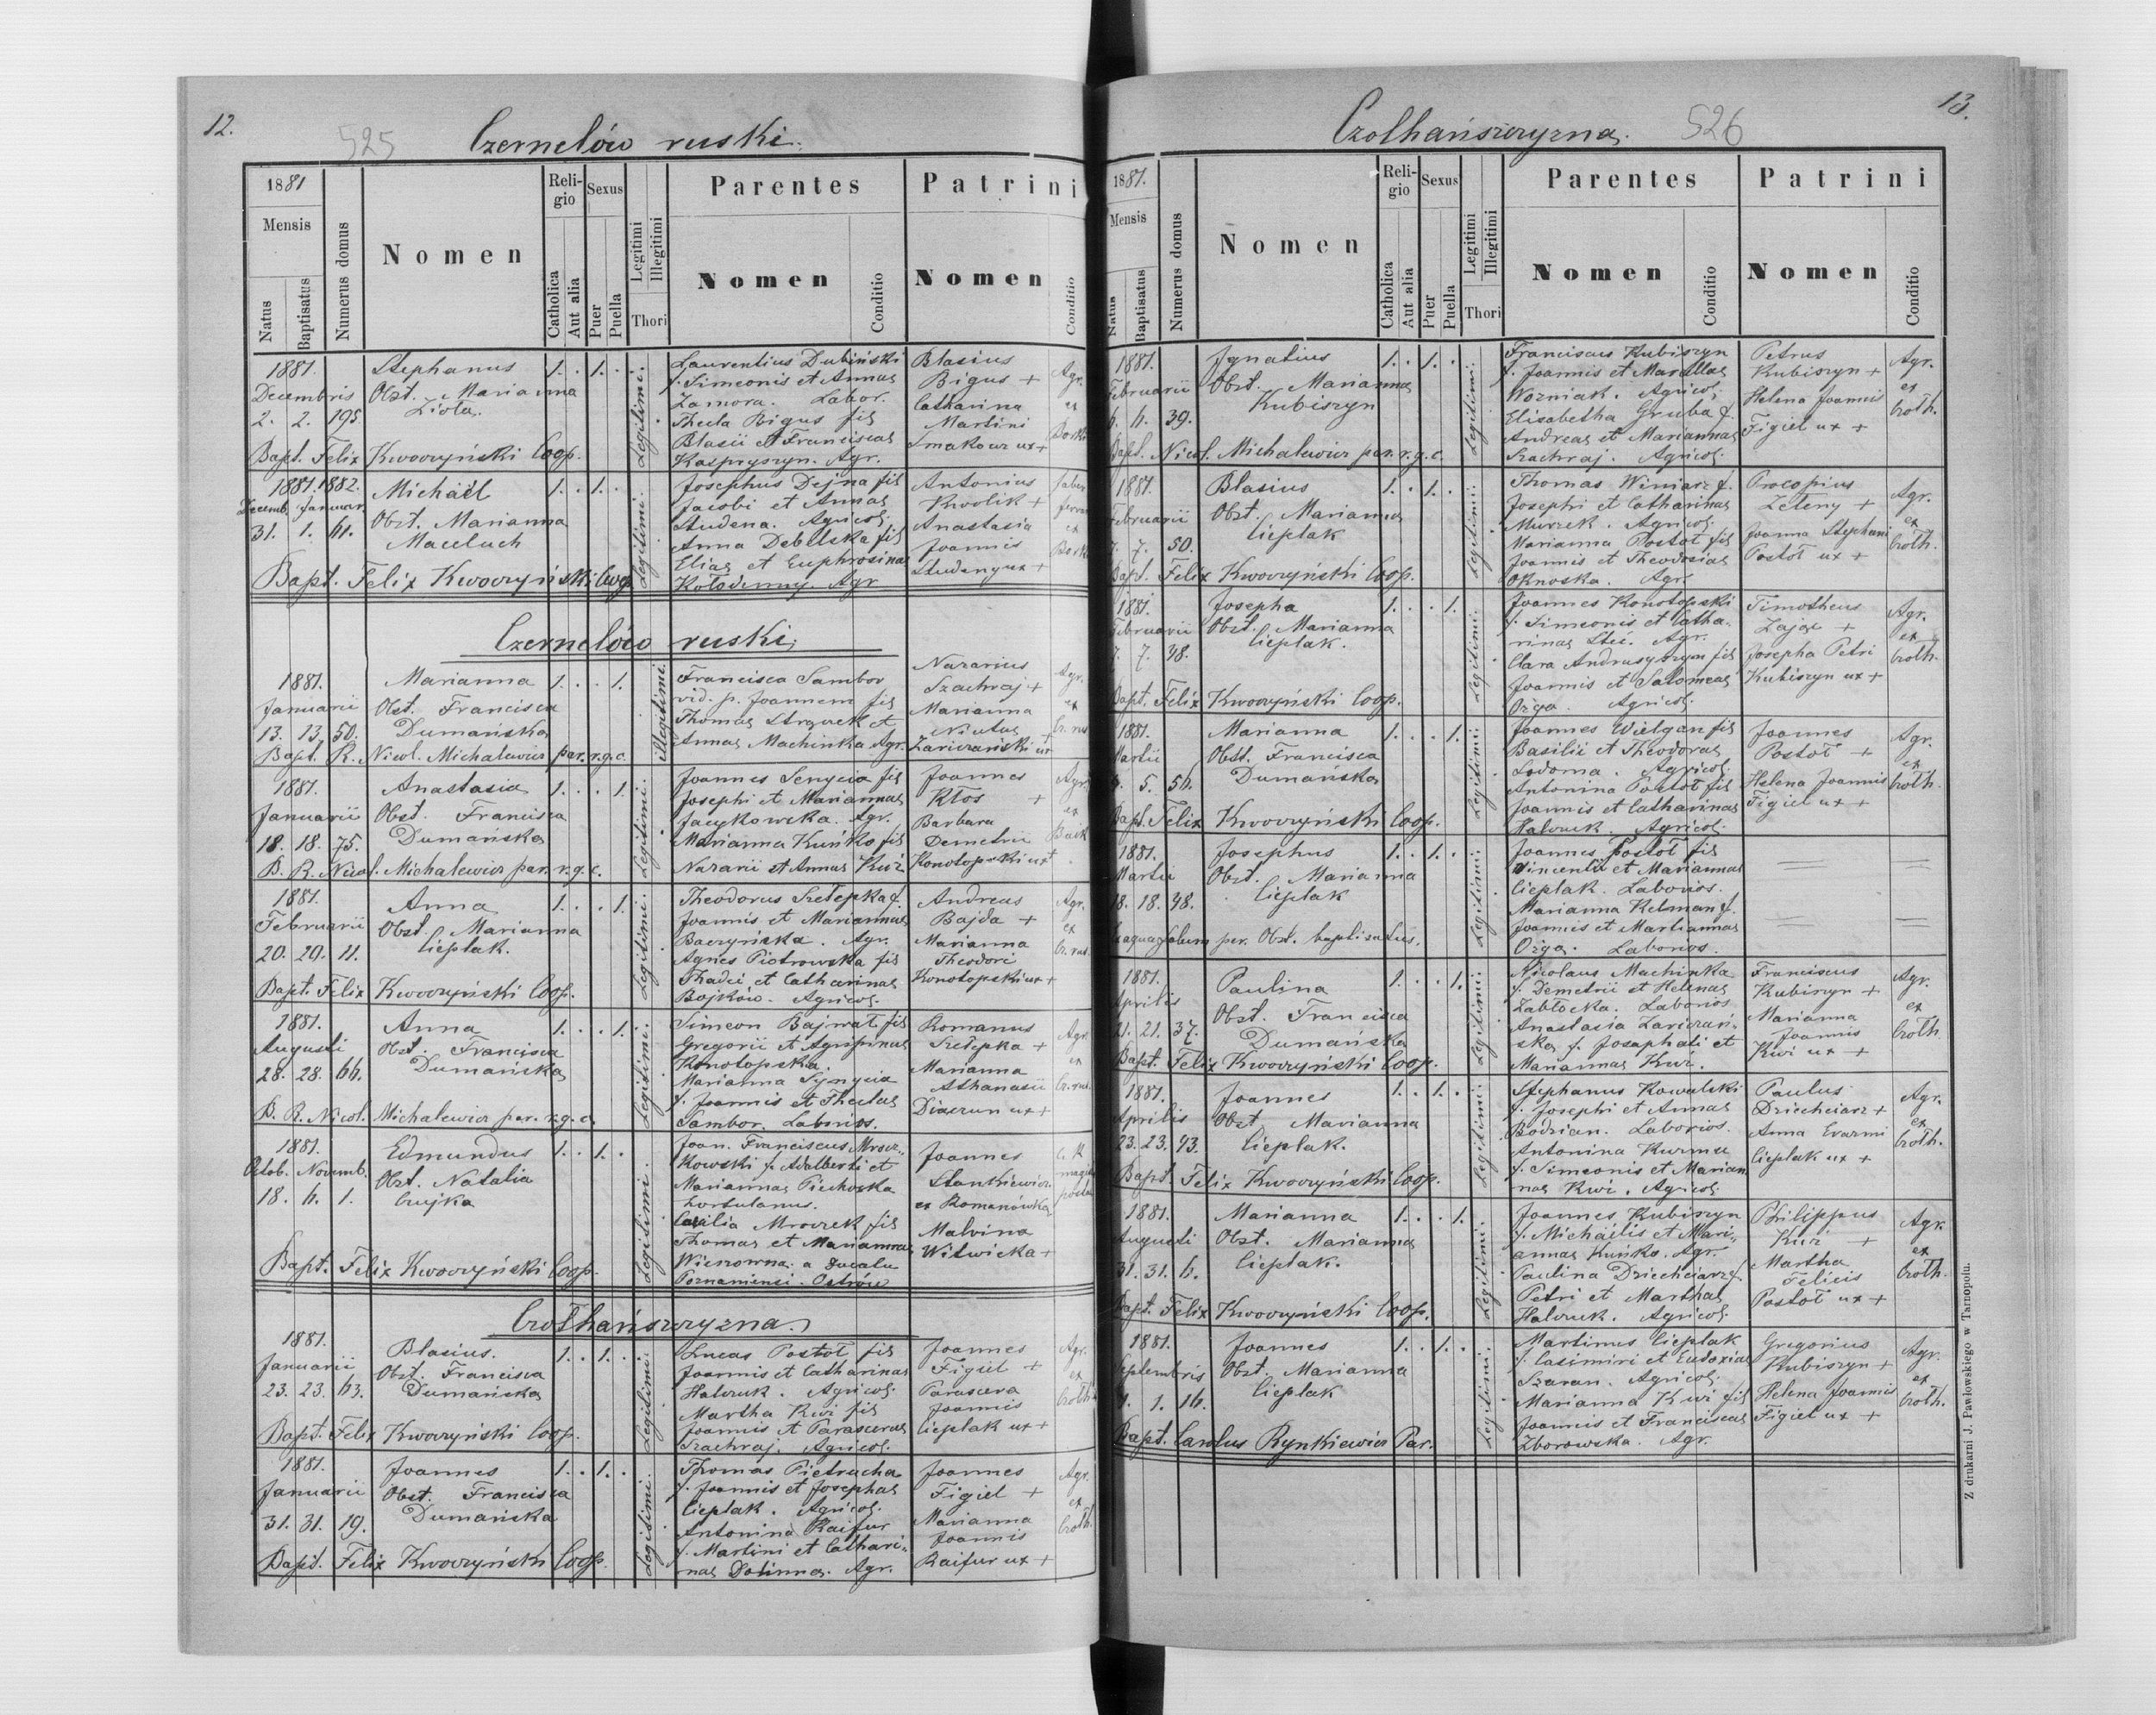 12.
525
Czernelów ruski.
1881
Mensis
Natus
Baptisatus
Numerus domus
Nomen
Religio
Catholica
Aut alia
Sexus
Puer
Puella
Legitimi
Illegitimi
Thori
Parentes
Nomen
Conditio
Patrini
Nomen
Conditio
1881.
Decembris
2. 2. 195
Stephanus
Obst. Marianna
Ziola.
1. . 1. .
Legitimi.
Laurentius Dubiński
f. Simeonis et Annae
Zamora. Labor.
Thecla Bigus fil
Blasii et Franciscae
Kaspryszyn. Agr.
Blasius
Bigus +
Catharina
Martini
Smakosz ux +
Agr.
ex
Borki
Bapt. Felix Kwoczyński Coop.
1881. 1882.
Decemb. Januar.
31. 1. 61.
Michaël
Obst. Marianna
Maceluch
1. . 1. .
Legitimi.
Josephus Dejna fil
Jacobi et Annae
Studena. Agricol.
Anna Debelska fil
Elias et Euphrosinae
Kołodenny. Agr
Antonius
Kwolik +
Anastasia
Joannis
Studeny ux +
faber
ex
Bapt. Felix Kwoczyński Coop
Czernelów ruski.
1881.
Januarii
13. 13. 50.
Marianna
Obst. Francisca
Dumańska
1. . . 1.
illegitimi.
Francisca Sambor
vid. p. Joannem fil
Thomae Strązek et
Annae Machinka Agr.
Nazarius
Szachraj +
Marianna
Zariczański ux
Agr.
ex
Cz. rus
Bapt. R. Nicol. Michalewicz par. r. g. c.
1881.
Januarii
18. 18. 75.
Anastasia
Obst. Francisca
Dumańska
1. . . 1.
Legitimi.
Joannes Senycia fil
Josephi et Mariannae
Jacykowska. Agr.
Marianna Kuńko fil
Nazarii et Annae Kwi
Joannes
Kłos +
Barbara
Demetrii
Konotopski ux +
Agr.
ex
B. R. Nicol. Michalewicz par. r. g. c.
1881.
Februarii
20. 20. 11.
Anna
Obst. Marianna
Cieplak.
1. . . 1.
Legitimi.
Theodorus Szełepka f.
Joannis et Mariannae
Baczyńska. Agr.
Agnes Piotrowska fil
Thadei et Catharinae
Bojków. Agricol.
Andreas
Bajda +
Marianna
Theodori
Konotopski ux +
Agr.
ex
Cz. rus.
Bapt. Felix Kwoczyński Coop.
1881.
Augusti
28. 28. 66.
Anna
Obst. Francisca
Dumańska
1. . . 1.
Legitimi.
Simeon Bajwat fil
Gregorii et Agripinae
Konotopska.
Marianna Synycia
f. Joannis et Theclae
Sambor. Laborios.
Romanus
Szełepka +
Marianna
Athanasii
Diaczun ux +
Agr.
ex
Cz. rus.
B. R. Nicol. Michalewicz par. r. g. c.
1881.
Octob. Novemb.
18. 6. 1.
Edmundus
Obst. Natalia
Cujka
1. . 1. .
Legitimi.
Joan. Franciscus Mrocz-
kowski f. Adalberti et
Mariannae Piechocka
hortulanus.
Cecilia Mroczek fil
Thomae et Mariannae
a ducatu
Poznaniensi. Ostrów
Joannes
Stankiewicz
ex Romanówka
Malvina
Witwicka +
Bapt. Felix Kwoczyński Coop.
Czołhańszczyzna.
1881.
Januarii
23. 23. 63.
Blasius.
Obst. Francisca
Dumańska
1. . 1. .
Legitimi.
Lucas Postół fil
Joannis et Catharinae
Halczuk. Agricol.
Martha Kwi fil
Joannis et Parascevae
Szachraj. Agricol.
Joannes
Figiel +
Parasceva
Joannis
Cieplak ux +
Agr.
ex
Czołh.
Bapt. Felix Kwoczyński Coop.
1881.
Januarii
31. 31. 19.
Joannes
Obst. Francisca
Dumańska
1. . 1. .
Legitimi.
Thomas Pietrucha
f. Joannis et Josephae
Cieplak. Agricol.
Antonina Raifur
f. Martini et Cathari-
nae Dolinna. Agr.
Joannes
Figiel +
Marianna
Joannis
Raifur ux +
Agr.
ex
Czołh.
Bapt. Felix Kwoczyński Coop.
13.
526
Czołhańszczyzna.
1881.
Mensis
Natus
Baptisatus
Numerus domus
Nomen
Religio
Catholica
Aut alia
Sexus
Puer
Puella
Legitimi
Illegitimi
Thori
Parentes
Nomen
Conditio
Patrini
Nomen
Conditio
1881.
Februarii
6. 6. 39.
Ignatius
Obst. Marianna
Kubiszyn
1. . 1. .
Legitimi.
Franciscus Kubiszyn
f. Joannis et Marthae
Wozniak. Agricol.
Elisabetha Gruba f.
Andreae et Mariannae
Szachraj. Agricol.
Petrus
Kubiszyn +
Helena Joannis
Figiel ux +
Agr.
ex
Czołh.
Bapt. Nicol. Michalewicz par. r. g. c.
1881.
Februarii
7. 7. 50.
Blasius
Obst. Marianna
Cieplak
1. . 1. .
Legitimi.
Thomas Winiarz f.
Josephi et Catharinae
Murzek. Agricol.
Marianna Postół fil
Joannis et Theodosiae
Oknoska. Agr.
Procopius
Zeteny +
Joanna Stephani
Postół ux +
Agr.
ex
Czołh.
Bapt. Felix Kwoczyński Coop.
1881.
Februarii
7. 7. 48.
Josepha
Obst. Marianna
Cieplak.
1. . . 1.
Legitimi.
Joannes Konotopski
f. Simeonis et Catha-
rinae Steć. Agr.
Clara Andruszyszym fil
Joannis et Salomeae
Ożga. Agricol.
Timotheus
Zając +
Josepha Petri
Kubiszyn ux +
Agr.
ex
Czołh.
Bapt. Felix Kwoczyński Coop.
1881.
Martii
5. 56.
Marianna
Obst. Francisca
Dumańska
1. . . 1.
Legitimi.
Joannes Wielgan fil
Basilii et Theodorae
Lodoma. Agricol.
Antonina Postół fil
Joannis et Catharinae
Halczuk. Agricol.
Joannes
Postół +
Helena Joannis
Figiel ux +
Agr.
ex
Czołh.
Bapt. Felix Kwoczyński Coop.
1881.
Martii
18. 18. 48.
Josephus
Obst. Marianna
Cieplak
1. . 1. .
Legitimi.
Joannes Postół fil
Vincentii et Mariannae
Cieplak. Laborios.
Marianna Kelman f.
Joannis et Mariannae
Ożga. Laborios.
Ex aqua solum per Obst. baptisatus.
1881.
Aprilis
21. 21. 37.
Paulina
Obst. Francisca
Dumańska
1. . . 1.
Legitimi.
Nicolaus Machinka
f. Demetrii et Helenae
Zabłocka. Laborios
Anastasia Zariczań-
ska f. Josaphati et
Mariannae Kwi.
Franciscus
Kubiszyn +
Marianna
Joannis
Kwi ux +
Agr.
ex
Czołh
Bapt. Felix Kwoczyński Coop.
1881.
Aprilis
23. 23. 43.
Joannes
Obst Marianna
Cieplak.
1. . 1. .
Legitimi.
Stephanus Kowalski
f. Josephi et Annae
Bodzian. Laborios.
Antonina Kurma
f. Simeonis et Marian
nae Kwi. Agricol.
Paulus
Dziechciarz +
Anna Erazmi
Cieplak ux +
Agr.
ex
Czołh.
Bapt. Felix Kwoczyński Coop.
1881.
Augusti
31. 31. 6.
Marianna
Obst. Marianna
Cieplak.
1. . . 1.
Legitimi.
Joannes Kubiszyn
f. Michaëlis et Mari-
annae Kuńko. Agr.
Paulina Dziechciarz f.
Petri et Marthae
Halczuk. Agricol.
Philippus
Kwi +
Martha
Felicis
Postół ux +
Agr.
ex
Czołh.
Bapt. Felix Kwoczyński Coop.
1881.
Septembris
1. 1. 16.
Joannes
Obst. Marianna
Cieplak
1. . 1. .
Legitimi.
Martinus Cieplak
f. Casimiri et Eudoxiae
Szaran. Agricol.
Marianna Kwi fil
Joannis et Franciscae
Zborowska. Agr.
Gregorius
Kubiszyn +
Helena Joannis
Figiel ux +
Agr.
ex
Czołh.
Bapt. Carolus Rynkiewicz Par.
Z drukarni J. Pawłowskiego w Tarnopolu.